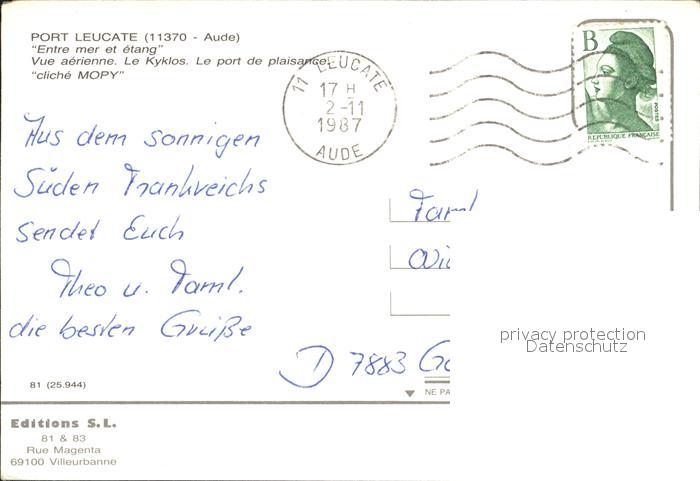 PORT LEUCATE (11370 - Aude)
"Entre mer et étang"
Vue aérienne. Le Kyklos. Le port de plaisance.
"cliché MOPY"
11 LEUCATE
17 H
2-11
1987
AUDE
B
POSTES
REPUBLIQUE FRANÇAISE
Aus dem sonnigen
Süden Frankreichs
sendet Euch
Theo u. Faml.
die besten Grüße
Faml
D 7883
privacy protection
Datenschutz
81 (25.944)
NE PA
Editions S.L.
81 & 83
Rue Magenta
69100 Villeurbanne